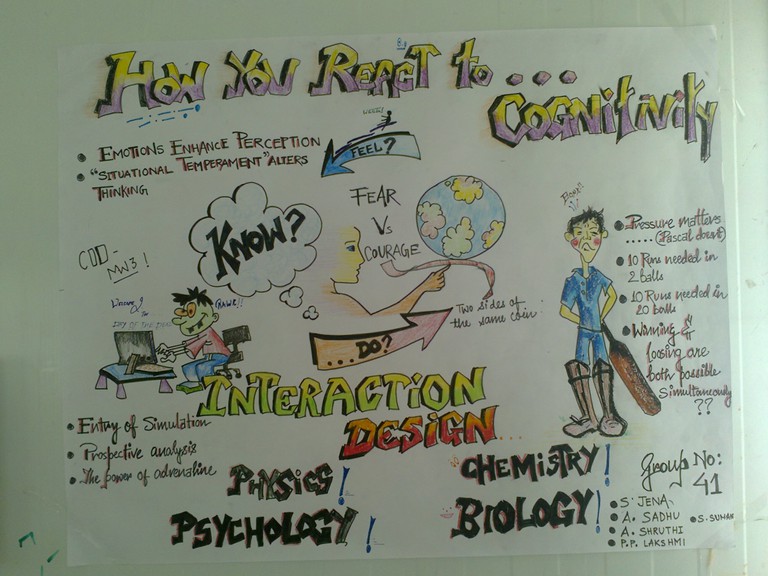 HOW YOU REACT to ...
COGNITIVITY
• EMOTIONS ENHANCE PERCEPTION
• "SITUATIONAL TEMPERAMENT" ALTERS
THINKING
FEEL?
KNOW?
FEAR
Vs
COURAGE
COD-
MW3!
GRAWR!!
Two sides of
the same coin.
... DO?
INTERACTION
DESIGN...
• Pressure matters
..... (Pascal doesn't)
• 10 Runs needed in
2 balls
• 10 Runs needed in
20 balls
• Winning &
loosing are
both possible
simultaneously
??
• Entry of Simulation
• Prospective analysis
• The power of adrenaline
PHYSICS!
PSYCHOLOGY!
CHEMISTRY!
BIOLOGY!
Group No:
41
• S. JENA
• A. SADHU
• S. SUMAN
• A. SHRUTHI
• P.P. LAKSHMI